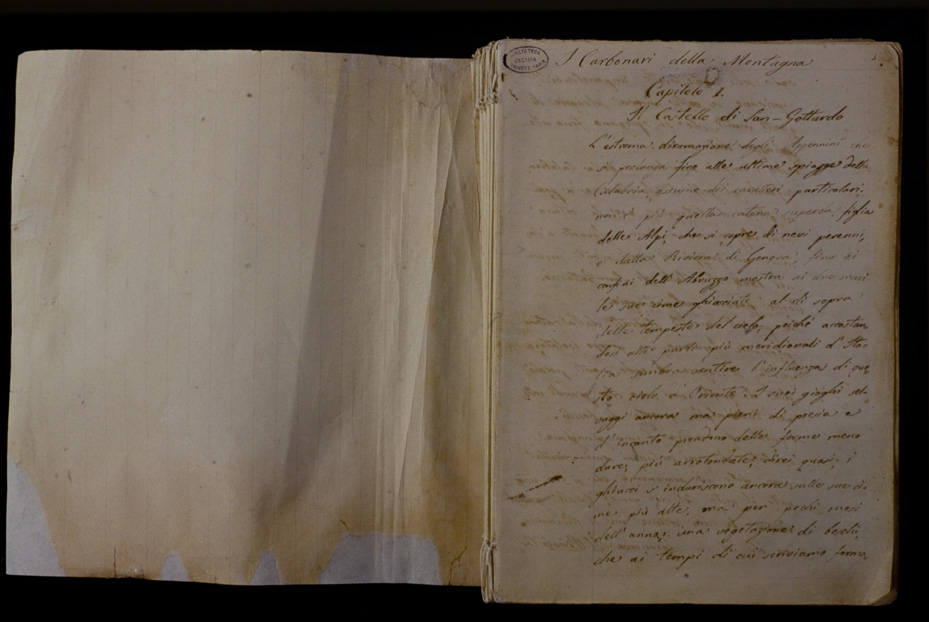 I Carbonari della Montagna
Capitolo 1.
Il Castello di San-Gottardo
L'estrema diramazione degli Apennini che
fino alle ultime spiagge della
Calabria, di caratteri particolari,
non è più quella catena superba, figlia
delle Alpi, che si copre di nevi perenni,
e dalla Riviera di Genova, fino ai
confini dell'Abruzzo mostra ai due mari
le sue cime ghiacciate al di sopra
delle tempeste del cielo, poiché accostan
dosi alle parti più meridionali d'Ita
lia sembra sentire l'influenza di que
sto cielo d'Oriente. I suoi gioghi sel
vaggi ancora ma pieni di poesia e
d'incanto prendono delle forme meno
dure, più arrotondate, direi quasi, i
ghiacci s'induriscono ancora sulle sue ci
me più alte, ma per pochi mesi
dell'anno; una vegetazione di boschi,
che ai tempi di cui scriviamo forma